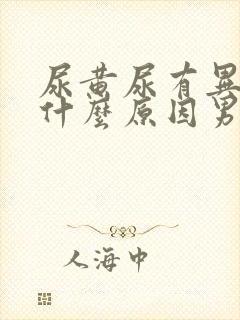 尿黄尿有異
什麼原因男
人海中